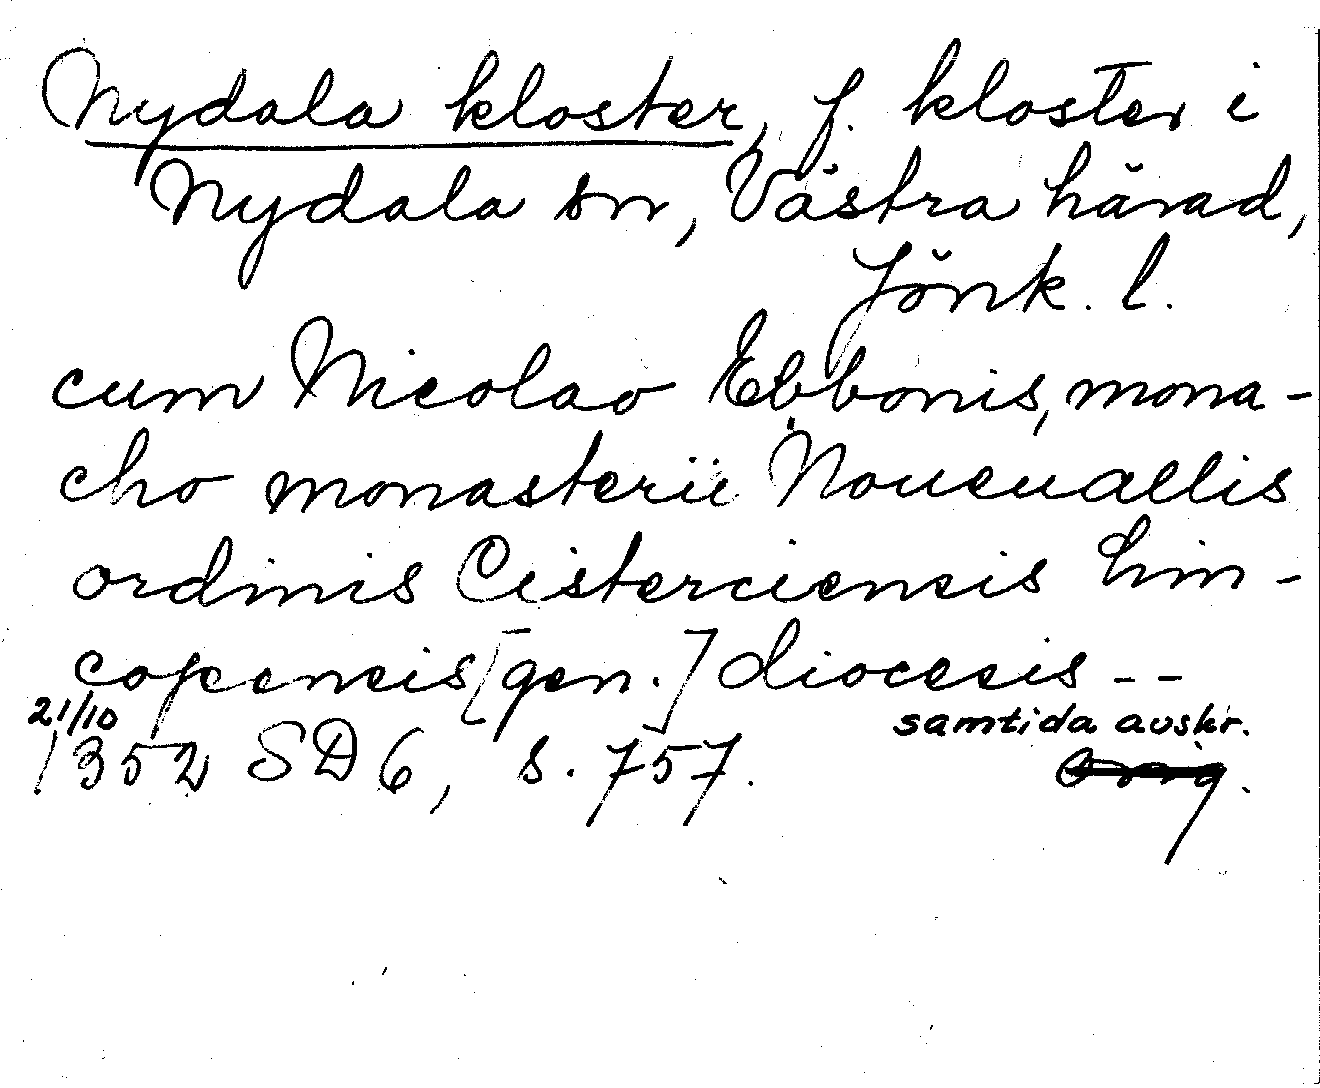 Nydala kloster, f. kloster i
Nydala sn, Västra härad,
Jönk. l.
cum Nicolao Ebbonis, mona-
cho monasterii Noueuallis
ordinis Cisterciensis Lin-
copensis [gen.] diocesis --
21/10 samtida avskr.
1352 SD 6, s. 757. Orig.